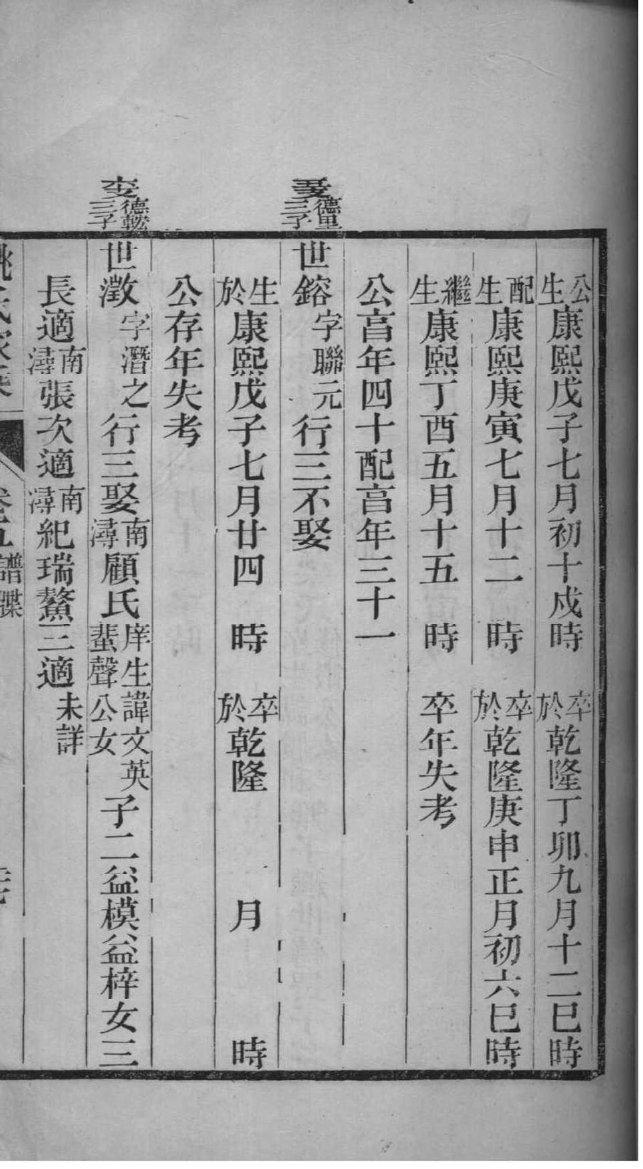 公生康熙戊子七月初十戍時 卒於乾隆丁卯九月十二巳時
配生康熙庚寅七月十二 時 卒於乾隆庚申正月初六巳時
繼生康熙丁酉五月十五 時 卒年失考
公亯年四十配亯年三十一
德里三子
世鎔字聯元行三不娶
生於康熙戊子七月廿四 時 卒於乾隆 月 時
公存年失考
德乾三子
世澂字潛之行三娶南潯顧氏庠生諱文英蜚聲公女子二益模益梓女三
長適南潯張次適南潯紀瑞鰲三適未詳
氏家乘 卷五譜牒